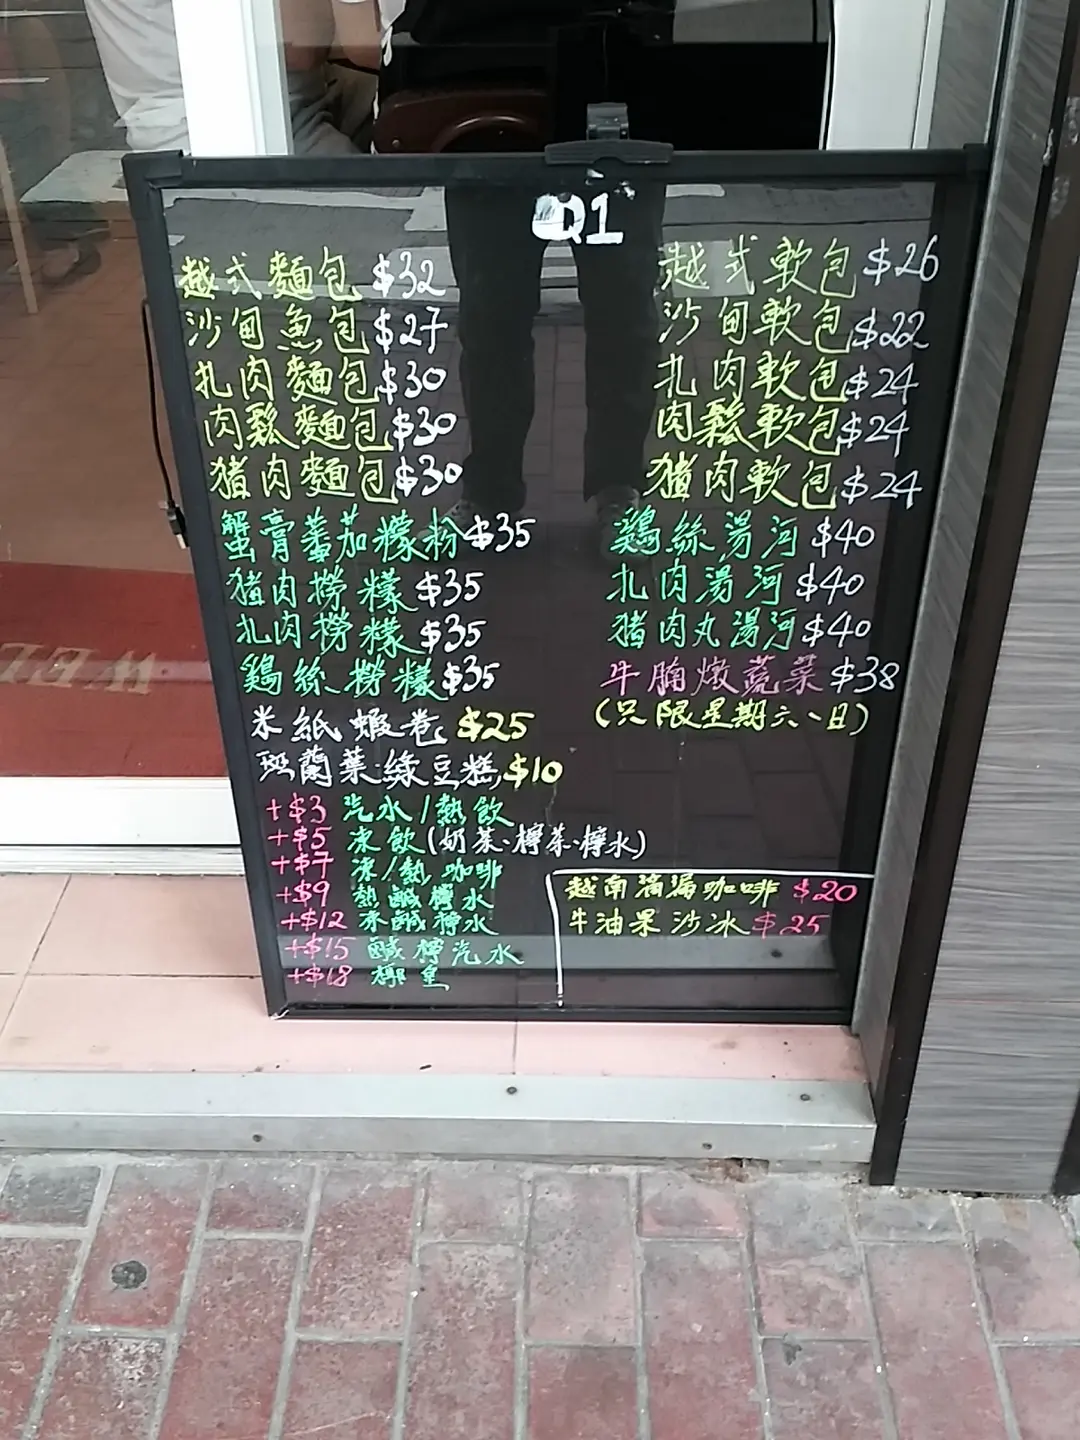 Q1
越式麵包 $32
沙甸魚包 $27
扎肉麵包 $30
肉鬆麵包 $30
豬肉麵包 $30
蟹膏蕃茄檬粉 $35
豬肉撈檬 $35
扎肉撈檬 $35
鷄絲撈檬 $35
米紙蝦卷 $25
班蘭葉綠豆糕 $10
+$3 汽水/熱飲
+$5 凍飲(奶茶、檸茶、檸水)
+$7 凍/熱咖啡
+$9 熱鹹檸水
+$12 凍鹹檸水
+$15 鹹檸汽水
+$18 椰皇
越式軟包 $26
沙甸軟包 $22
扎肉軟包 $24
肉鬆軟包 $24
豬肉軟包 $24
鷄絲湯河 $40
扎肉湯河 $40
豬肉丸湯河 $40
牛腩燉蔬菜 $38
(只限星期六、日)
越南滴漏咖啡 $20
牛油果沙冰 $25
WEL